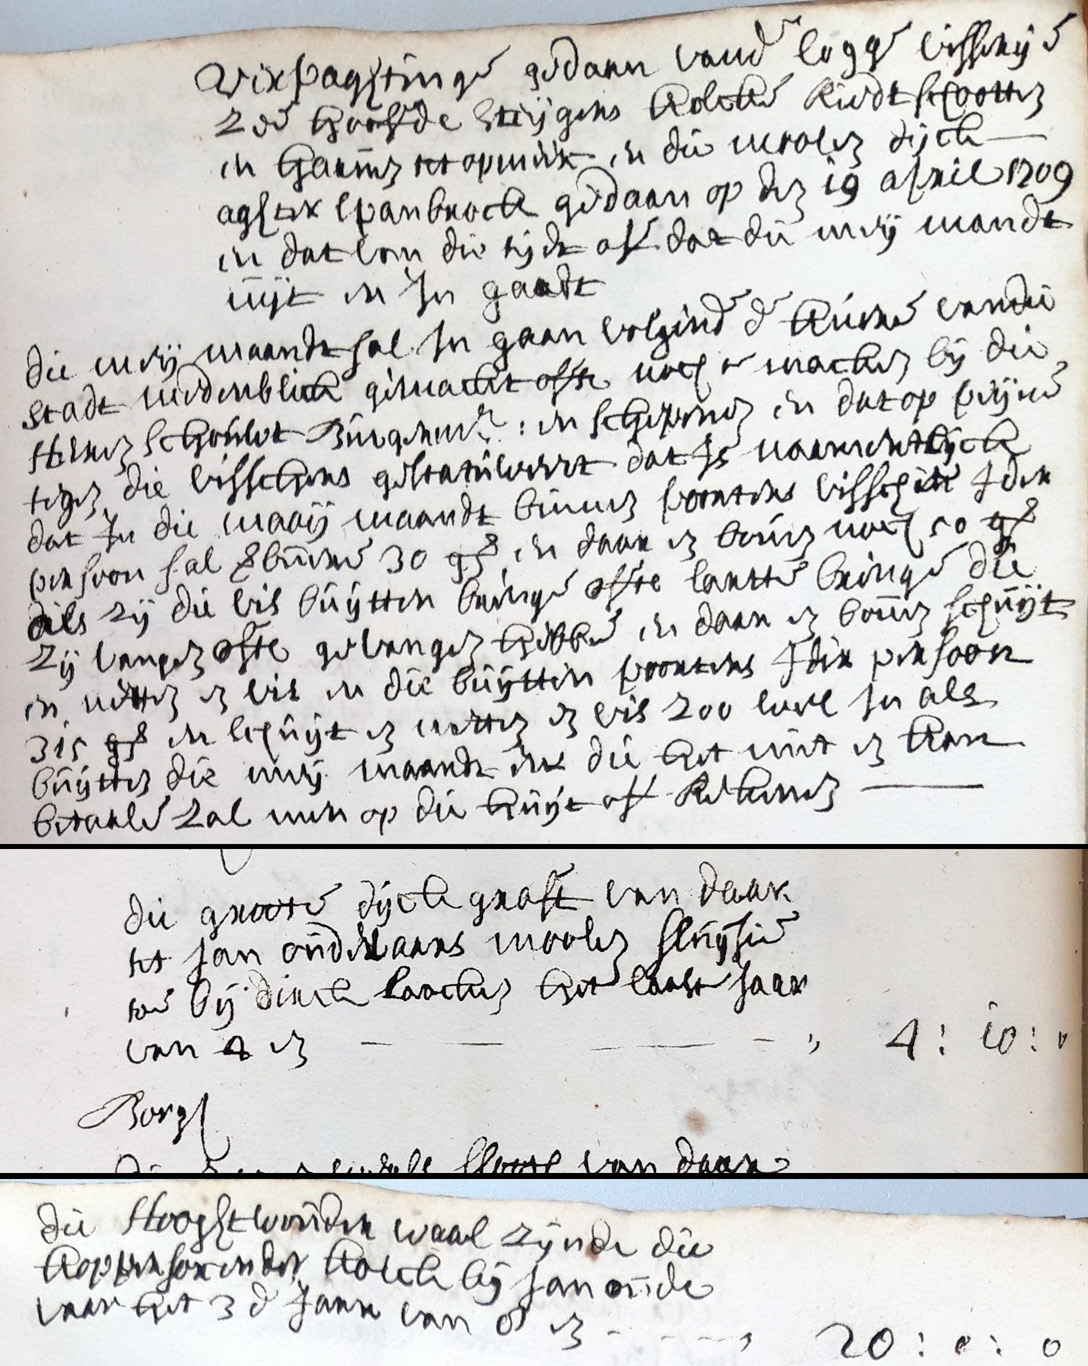 Verpaghtinge gedaan vande logge visserije
zoo hoofde steijgers kolcke Riedtschootten
en haamen tot opmeer en die moolen dijck
aghter Spanbroek gedaan op den 19 april 1709
en dat van die tijdt off dat die meij maandt
uijt en In gaadt
die meij maandt sal In gaan volgende d keure van die
stadt medenblick gemackt ofte noch te maeken bij die
Heeren schout Burgemrs: en schepenen en dat op peijne
tegen die visschers gestatuleert dat Is naamentlijck
dat In die maaij maandt binnen poorters visschen Ider
persoon sal verbeuren 30 gs en daar en boven noch 50 gs
als zij die vis buijtten bringe ofte laatte bringe die
zij vangen ofte gevangen hebbe en daar en boven schuijt
en netten en vis en die buijtten poorters Ider persoon
315 gs en schuijt en netten en vis 200 wel In als
buijtten die meij maandt en die het niet en kan
betaale zal men op die huijt off Rekenen
die groote dijck graft van daar
tot Jan oudevaars moolen sluijsie
toe bij dirck loockes het laast Jaar
van 4 en 4 : 10 : 0
Borgh
van daar
die Hooghtwouder waal zijnde die
kopper kolck bij Jan oude
vaar het 3 d Jaar van 8 en 20 : 0 : 0